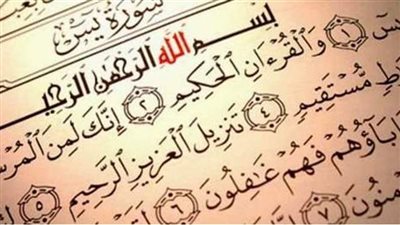 سورة يس
بسم الله الرحمن الرحي
يس ١ والقرءان الحكيم ٢ إنك لمن المرس
ط مستقيم ٤ تنزيل العزيز الرحيم ٥
ءاباؤهم فهم غافلون ٦
منون ٧